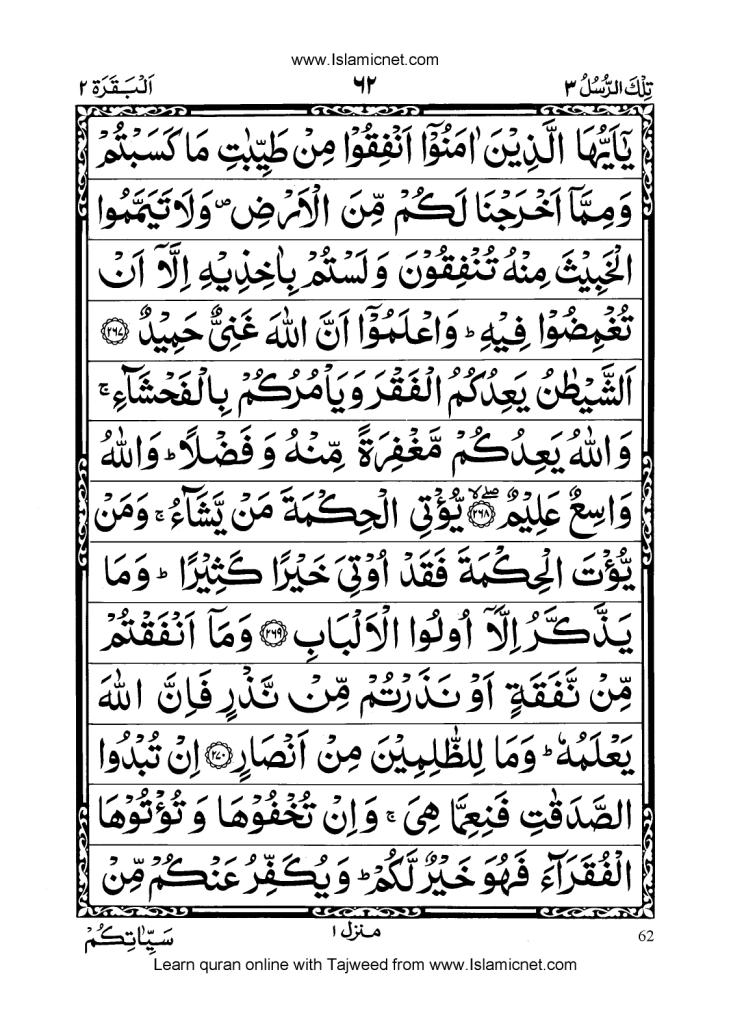 www.Islamicnet.com
تِلْكَ الرُّسُلُ ٣
٦٢
اَلْبَقَرَة ٢
يٰۤاَيُّهَا الَّذِيْنَ اٰمَنُوْۤا اَنْفِقُوْا مِنْ طَيِّبٰتِ مَا كَسَبْتُمْ
وَمِمَّاۤ اَخْرَجْنَا لَكُمْ مِّنَ الْاَرْضِ ۪ وَلَا تَيَمَّمُوا
الْخَبِيْثَ مِنْهُ تُنْفِقُوْنَ وَلَسْتُمْ بِاٰخِذِيْهِ اِلَّاۤ اَنْ
تُغْمِضُوْا فِيْهِ ؕ وَاعْلَمُوْۤا اَنَّ اللّٰهَ غَنِيٌّ حَمِيْدٌ ﴿٢٦٧﴾
اَلشَّيْطٰنُ يَعِدُكُمُ الْفَقْرَ وَيَاْمُرُكُمْ بِالْفَحْشَآءِ ۚ
وَاللّٰهُ يَعِدُكُمْ مَّغْفِرَةً مِّنْهُ وَفَضْلًا ؕ وَاللّٰهُ
وَاسِعٌ عَلِيْمٌ ﴿٢٦٨﴾ ۖۙ يُّؤْتِي الْحِكْمَةَ مَنْ يَّشَآءُ ۚ وَمَنْ
يُّؤْتَ الْحِكْمَةَ فَقَدْ اُوْتِيَ خَيْرًا كَثِيْرًا ؕ وَمَا
يَذَّكَّرُ اِلَّاۤ اُولُوا الْاَلْبَابِ ﴿٢٦٩﴾ وَمَاۤ اَنْفَقْتُمْ
مِّنْ نَّفَقَةٍ اَوْ نَذَرْتُمْ مِّنْ نَّذْرٍ فَاِنَّ اللّٰهَ
يَعْلَمُهٗ ؕ وَمَا لِلظّٰلِمِيْنَ مِنْ اَنْصَارٍ ﴿٢٧٠﴾ اِنْ تُبْدُوا
الصَّدَقٰتِ فَنِعِمَّا هِيَ ۚ وَاِنْ تُخْفُوْهَا وَتُؤْتُوْهَا
الْفُقَرَآءَ فَهُوَ خَيْرٌ لَّكُمْ ؕ وَيُكَفِّرُ عَنْكُمْ مِّنْ
سَيِّاٰتِكُمْ
منزل ١
62
Learn quran online with Tajweed from www.Islamicnet.com